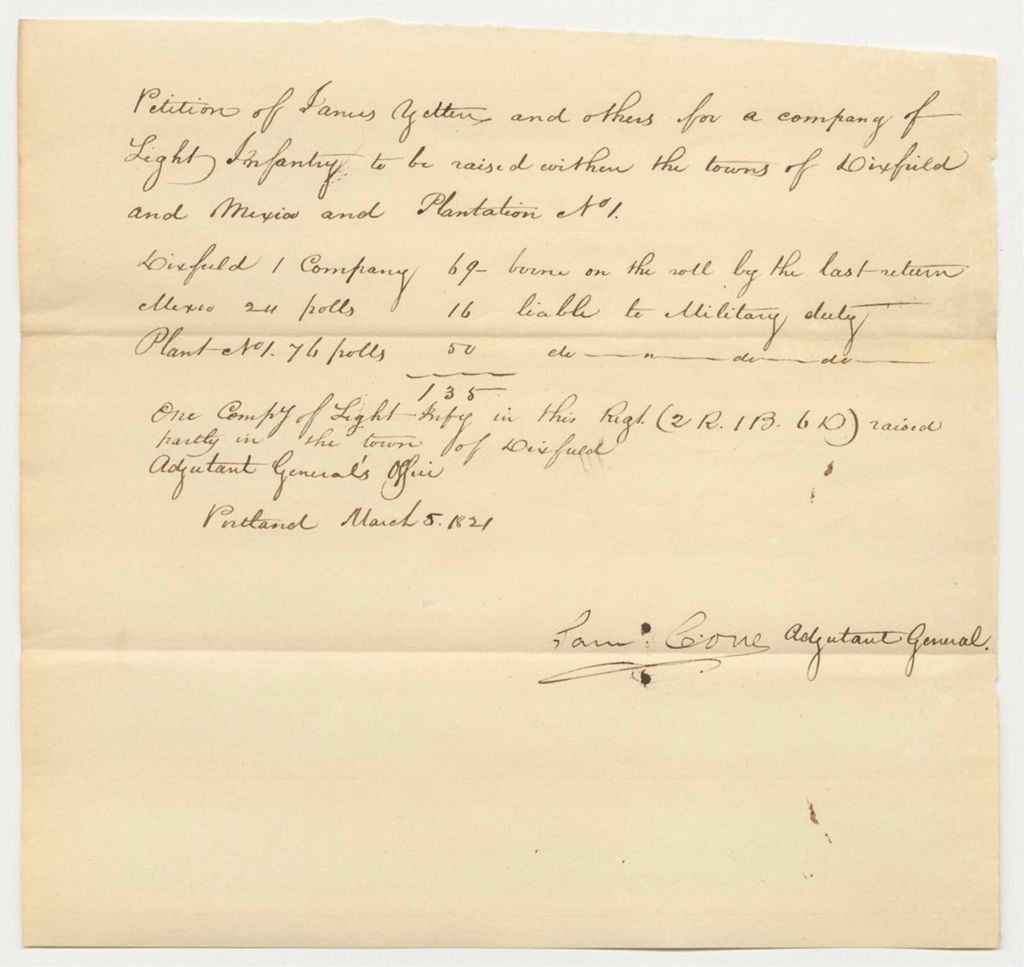 Petition of James Yetten and others for a company of
Light Infantry to be raised within the towns of Dixfield
and Mexico and Plantation No 1.
Dixfield 1 Company 69 - borne on the roll by the last return
Mexico 24 polls 16 liable to Military duty
Plant No 1. 76 polls 50 do — " — do — do —
135
One Compy of Light Infy in this Regt. (2 R. 1 B. 6 D) raised
partly in the town of Dixfield
Adjutant General's Office
Portland March 5. 1821
Saml. Cony Adjutant General.